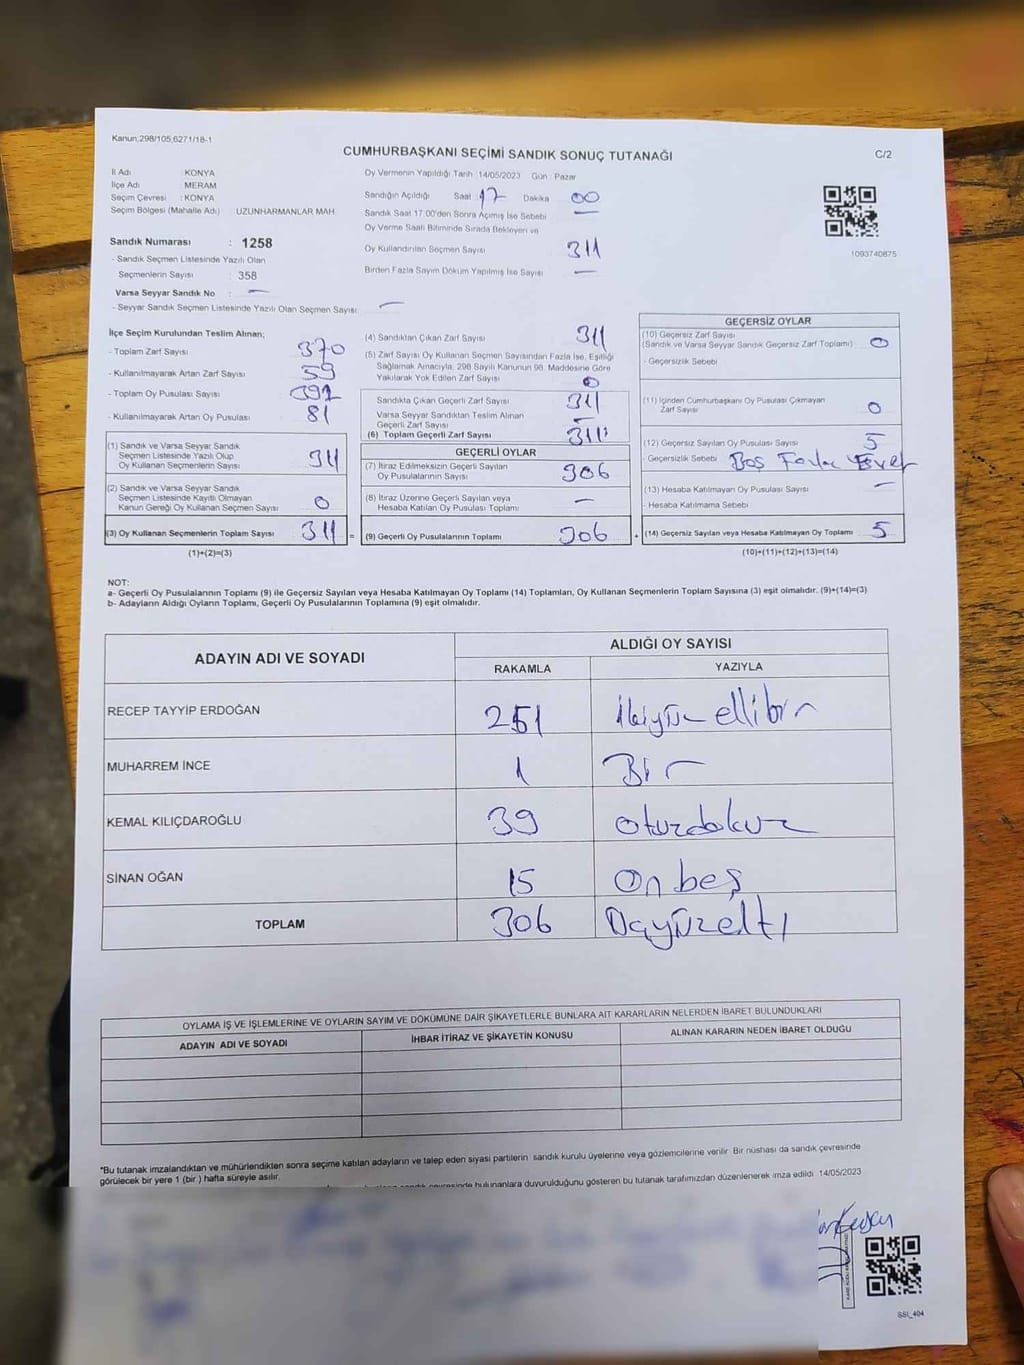 Kanun:298/105;6271/18-1
CUMHURBAŞKANI SEÇİMİ SANDIK SONUÇ TUTANAĞI
C/2
İl Adı KONYA
İlçe Adı MERAM
Seçim Çevresi : KONYA
Seçim Bölgesi (Mahalle Adı) : UZUNHARMANLAR MAH
Sandık Numarası : 1258
- Sandık Seçmen Listesinde Yazılı Olan
Seçmenlerin Sayısı : 358
Varsa Seyyar Sandık No : —
- Seyyar Sandık Seçmen Listesinde Yazılı Olan Seçmen Sayısı: —
Oy Vermenin Yapıldığı Tarih 14/05/2023 Gün Pazar
Sandığın Açıldığı Saat 17 Dakika 00
Sandık Saat 17:00'den Sonra Açılmış İse Sebebi —
Oy Verme Saati Bitiminde Sırada Bekleyen ve
Oy Kullandırılan Seçmen Sayısı 311
Birden Fazla Sayım Döküm Yapılmış İse Sayısı —
1093740875
İlçe Seçim Kurulundan Teslim Alınan;
- Toplam Zarf Sayısı 370
- Kullanılmayarak Artan Zarf Sayısı 59
- Toplam Oy Pusulası Sayısı 392
- Kullanılmayarak Artan Oy Pusulası 81
(1) Sandık ve Varsa Seyyar Sandık
Seçmen Listesinde Yazılı Olup
Oy Kullanan Seçmenlerin Sayısı 311
(2) Sandık ve Varsa Seyyar Sandık
Seçmen Listesinde Kayıtlı Olmayan
Kanun Gereği Oy Kullanan Seçmen Sayısı 0
(3) Oy Kullanan Seçmenlerin Toplam Sayısı 311 =
(1)+(2)=(3)
(4) Sandıktan Çıkan Zarf Sayısı 311
(5) Zarf Sayısı Oy Kullanan Seçmen Sayısından Fazla İse, Eşitliği
Sağlamak Amacıyla, 298 Sayılı Kanunun 98. Maddesine Göre
Yakılarak Yok Edilen Zarf Sayısı 0
Sandıkta Çıkan Geçerli Zarf Sayısı 311
Varsa Seyyar Sandıktan Teslim Alınan
Geçerli Zarf Sayısı —
(6) Toplam Geçerli Zarf Sayısı 311
GEÇERLİ OYLAR
(7) İtiraz Edilmeksizin Geçerli Sayılan
Oy Pusulalarının Sayısı 306
(8) İtiraz Üzerine Geçerli Sayılan veya
Hesaba Katılan Oy Pusulası Toplamı —
(9) Geçerli Oy Pusulalarının Toplamı 306 +
GEÇERSİZ OYLAR
(10) Geçersiz Zarf Sayısı
(Sandık ve Varsa Seyyar Sandık Geçersiz Zarf Toplamı) 0
- Geçersizlik Sebebi
(11) İçinden Cumhurbaşkanı Oy Pusulası Çıkmayan
Zarf Sayısı 0
(12) Geçersiz Sayılan Oy Pusulası Sayısı 5
- Geçersizlik Sebebi Boş Fazla Evet
(13) Hesaba Katılmayan Oy Pusulası Sayısı —
- Hesaba Katılmama Sebebi
(14) Geçersiz Sayılan veya Hesaba Katılmayan Oy Toplamı 5
(10)+(11)+(12)+(13)=(14)
NOT:
a- Geçerli Oy Pusulalarının Toplamı (9) ile Geçersiz Sayılan veya Hesaba Katılmayan Oy Toplamı (14) Toplamları, Oy Kullanan Seçmenlerin Toplam Sayısına (3) eşit olmalıdır. (9)+(14)=(3)
b- Adayların Aldığı Oyların Toplamı, Geçerli Oy Pusulalarının Toplamına (9) eşit olmalıdır.
ADAYIN ADI VE SOYADI
ALDIĞI OY SAYISI
RAKAMLA YAZIYLA
RECEP TAYYİP ERDOĞAN 251 ikiyüz ellibir
MUHARREM İNCE 1 Bir
KEMAL KILIÇDAROĞLU 39 otuzdokuz
SİNAN OĞAN 15 On beş
TOPLAM 306 Üçyüzaltı
OYLAMA İŞ VE İŞLEMLERİNE VE OYLARIN SAYIM VE DÖKÜMÜNE DAİR ŞİKAYETLERLE BUNLARA AİT KARARLARIN NELERDEN İBARET BULUNDUKLARI
ADAYIN ADI VE SOYADI İHBAR İTİRAZ VE ŞİKAYETİN KONUSU ALINAN KARARIN NEDEN İBARET OLDUĞU
*Bu tutanak imzalandıktan ve mühürlendikten sonra seçime katılan adayların ve talep eden siyasi partilerin sandık kurulu üyelerine veya gözlemcilerine verilir. Bir nüshası da sandık çevresinde
görülecek bir yere 1 (bir ) hafta süreyle asılır.
bulunanlara duyurulduğunu gösteren bu tutanak tarafımızdan düzenlenerek imza edildi 14/05/2023
SSI_404